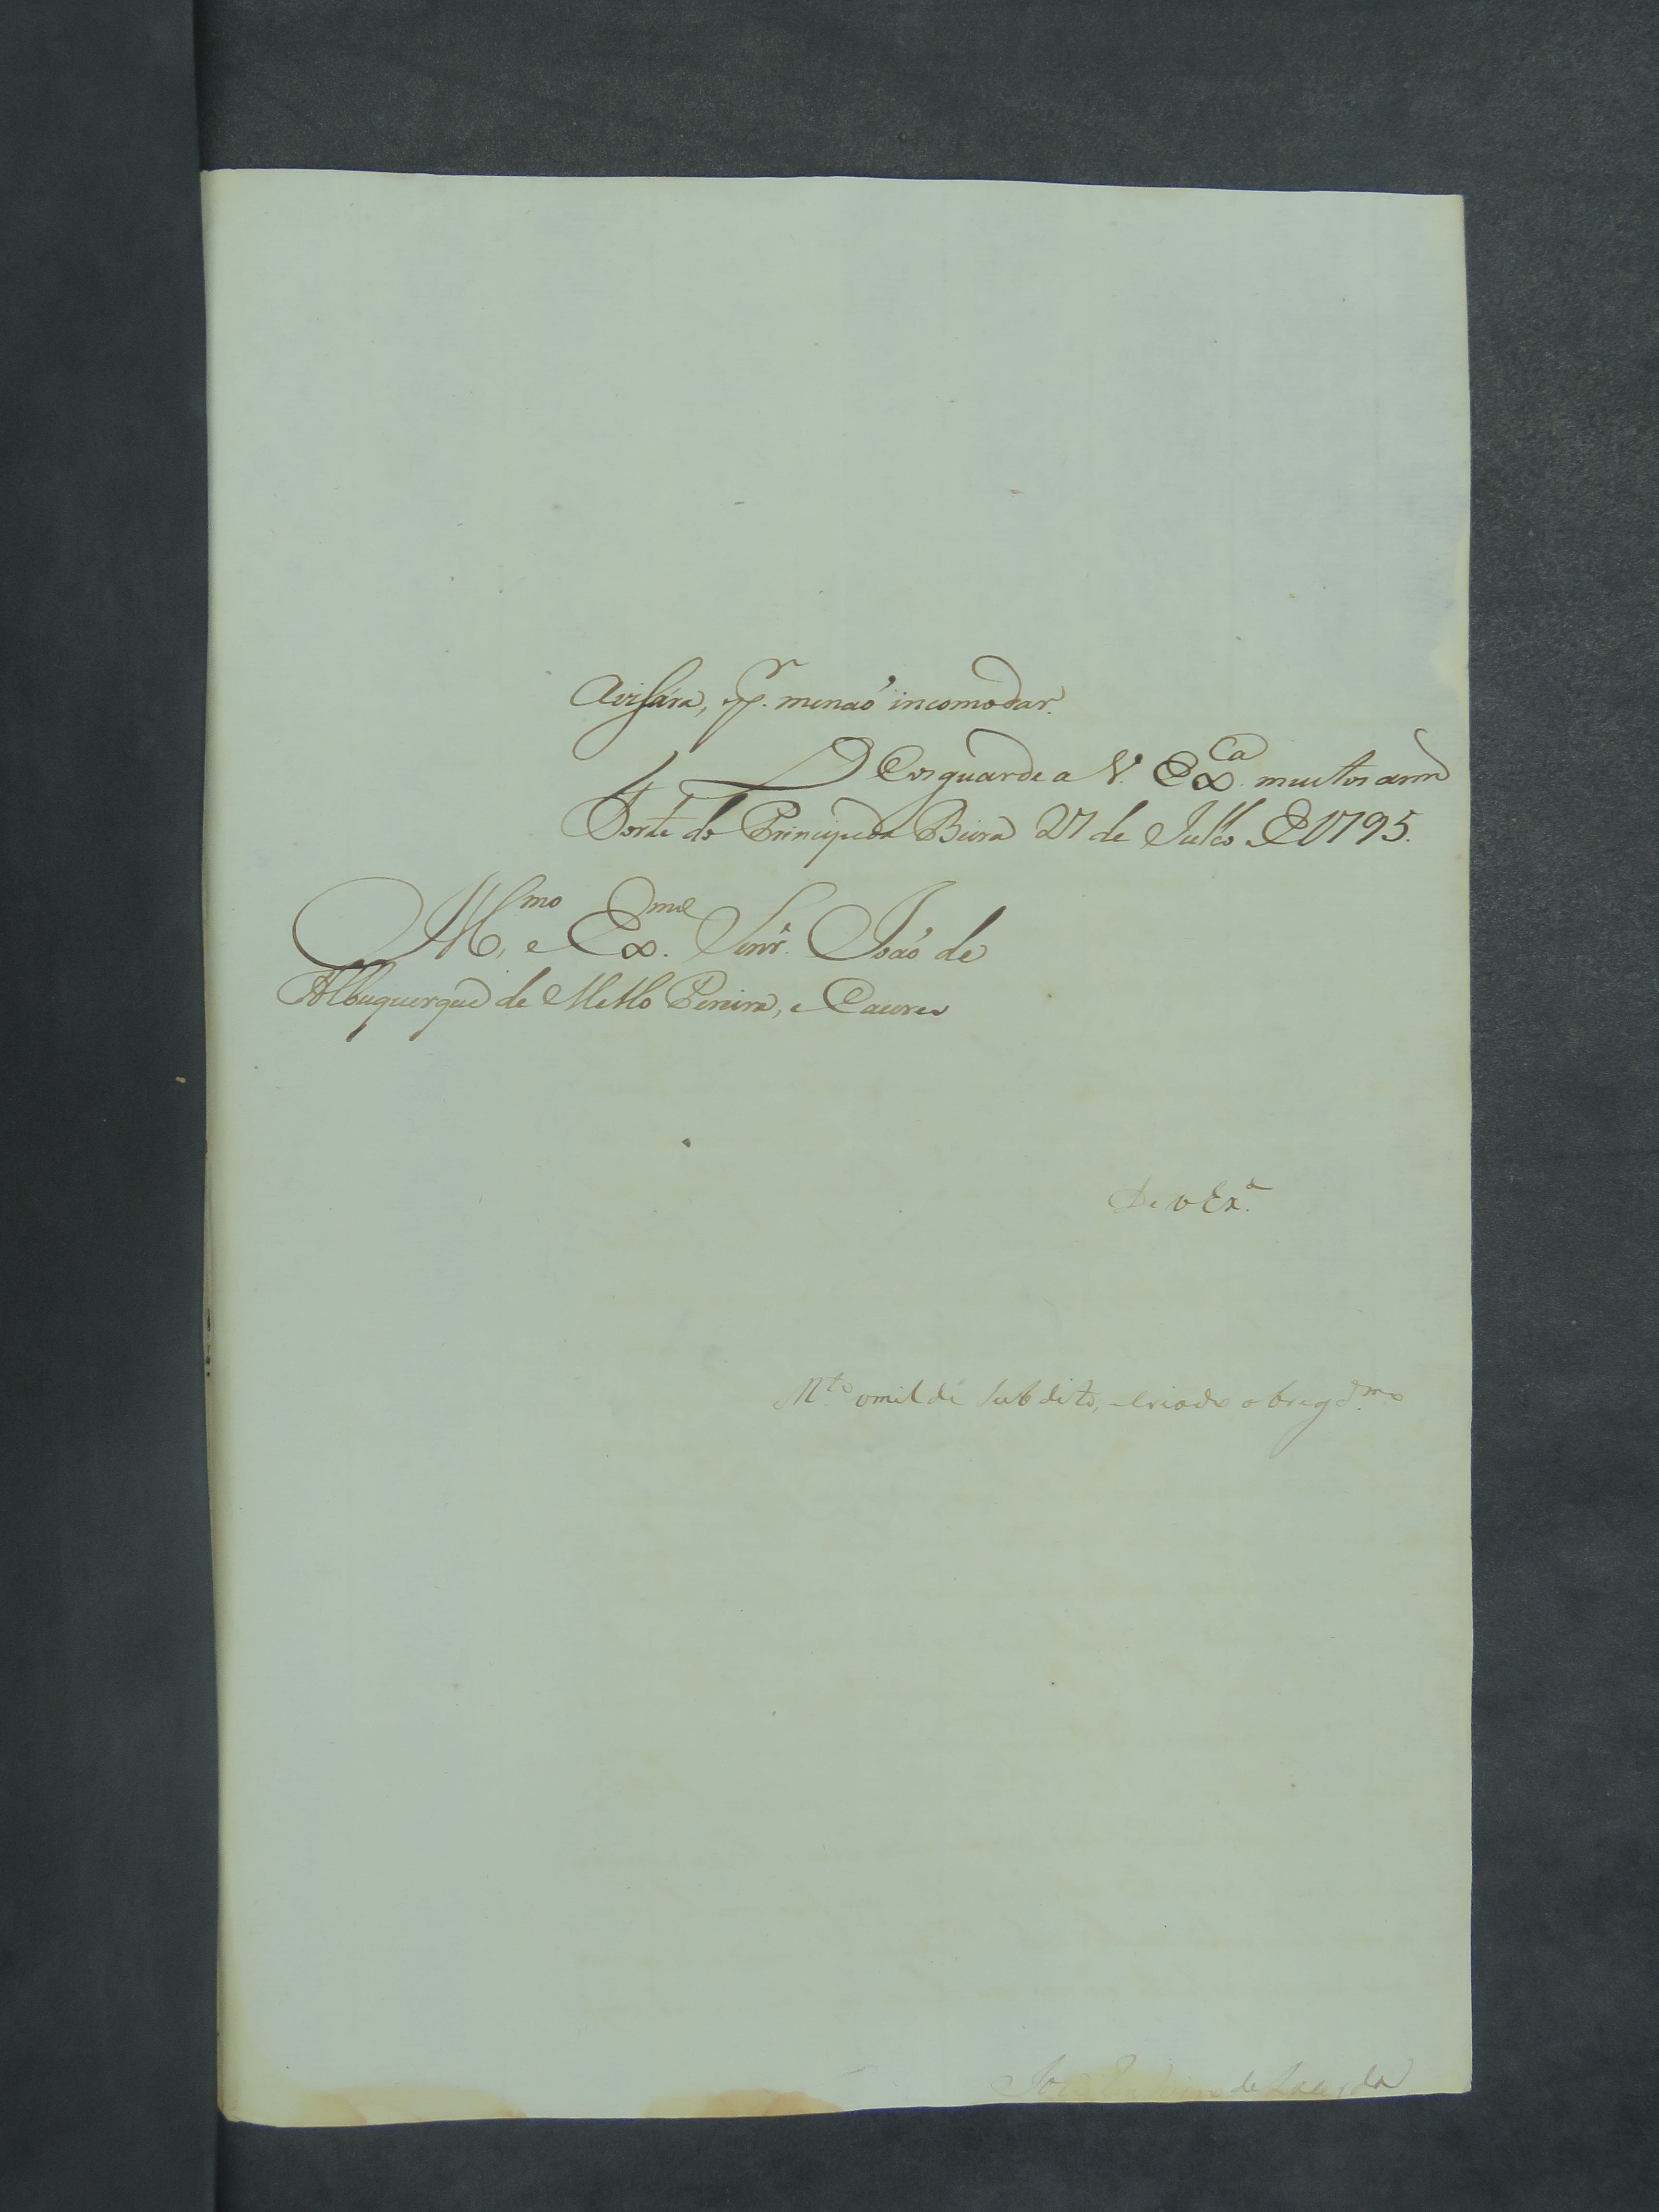 avisára, p.r menaó incomodar.
Deos guarde a V. Ex.ca muitos ann.
Forte do Principe da Beira 27 de Julho de 1795.
Ill.mo, e Ex.mo Senr. Joaó de
Albuquerque de Mello Pereira, e Caceres
De V Ex.a
M.to omilde subdito, e criado obrigd.mo
Joze de Lacerda